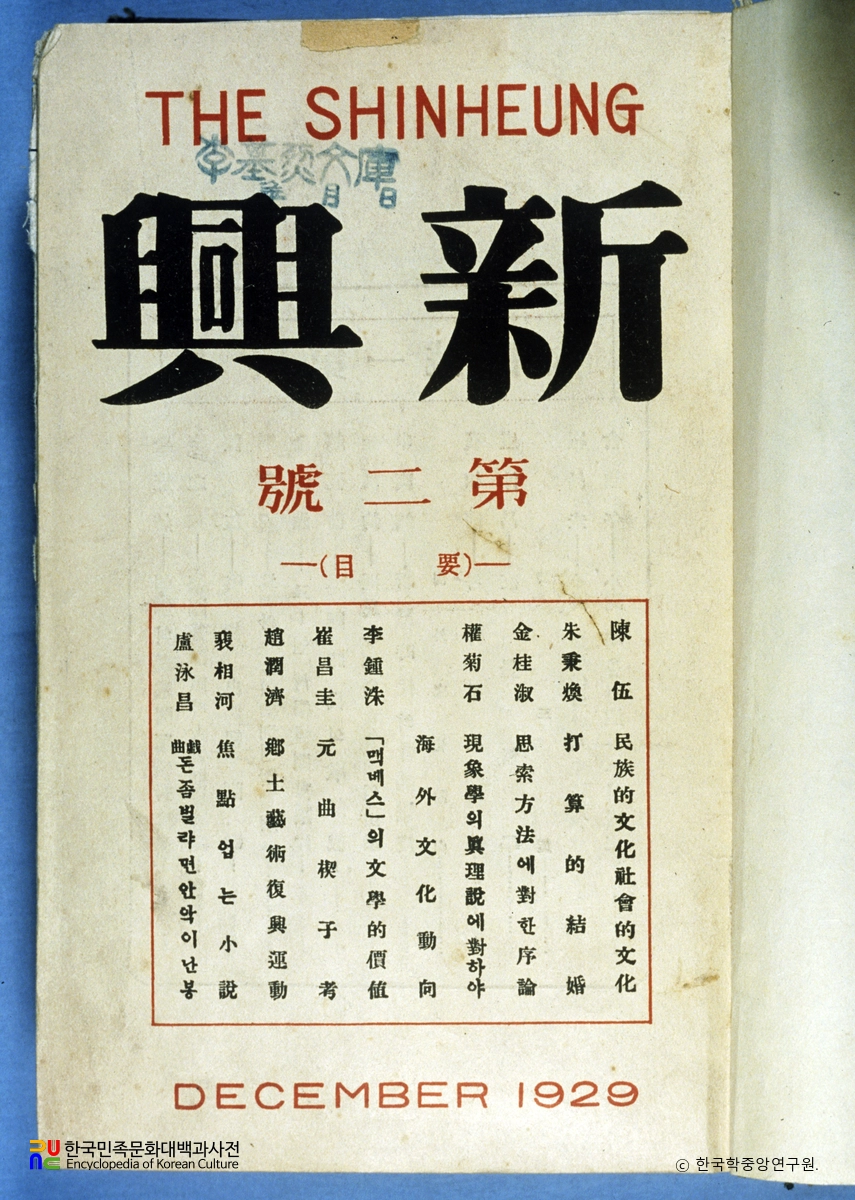 THE SHINHEUNG
新興
第二號
(要目)
陳伍 民族的文化社會的文化
朱秉煥 打算的結婚
金桂淑 思索方法에對한序論
權菊石 現象學의眞理說에對하야
海外文化動向
李鍾洙 「맥베스」의文學的價値
崔昌圭 元曲楔子考
趙潤濟 鄕土藝術復興運動
裵相河 焦點업는小說
盧泳昌 戱曲돈좀벌랴면안악이난봉
DECEMBER 1929
한국민족문화대백과사전
Encyclopedia of Korean Culture
© 한국학중앙연구원.